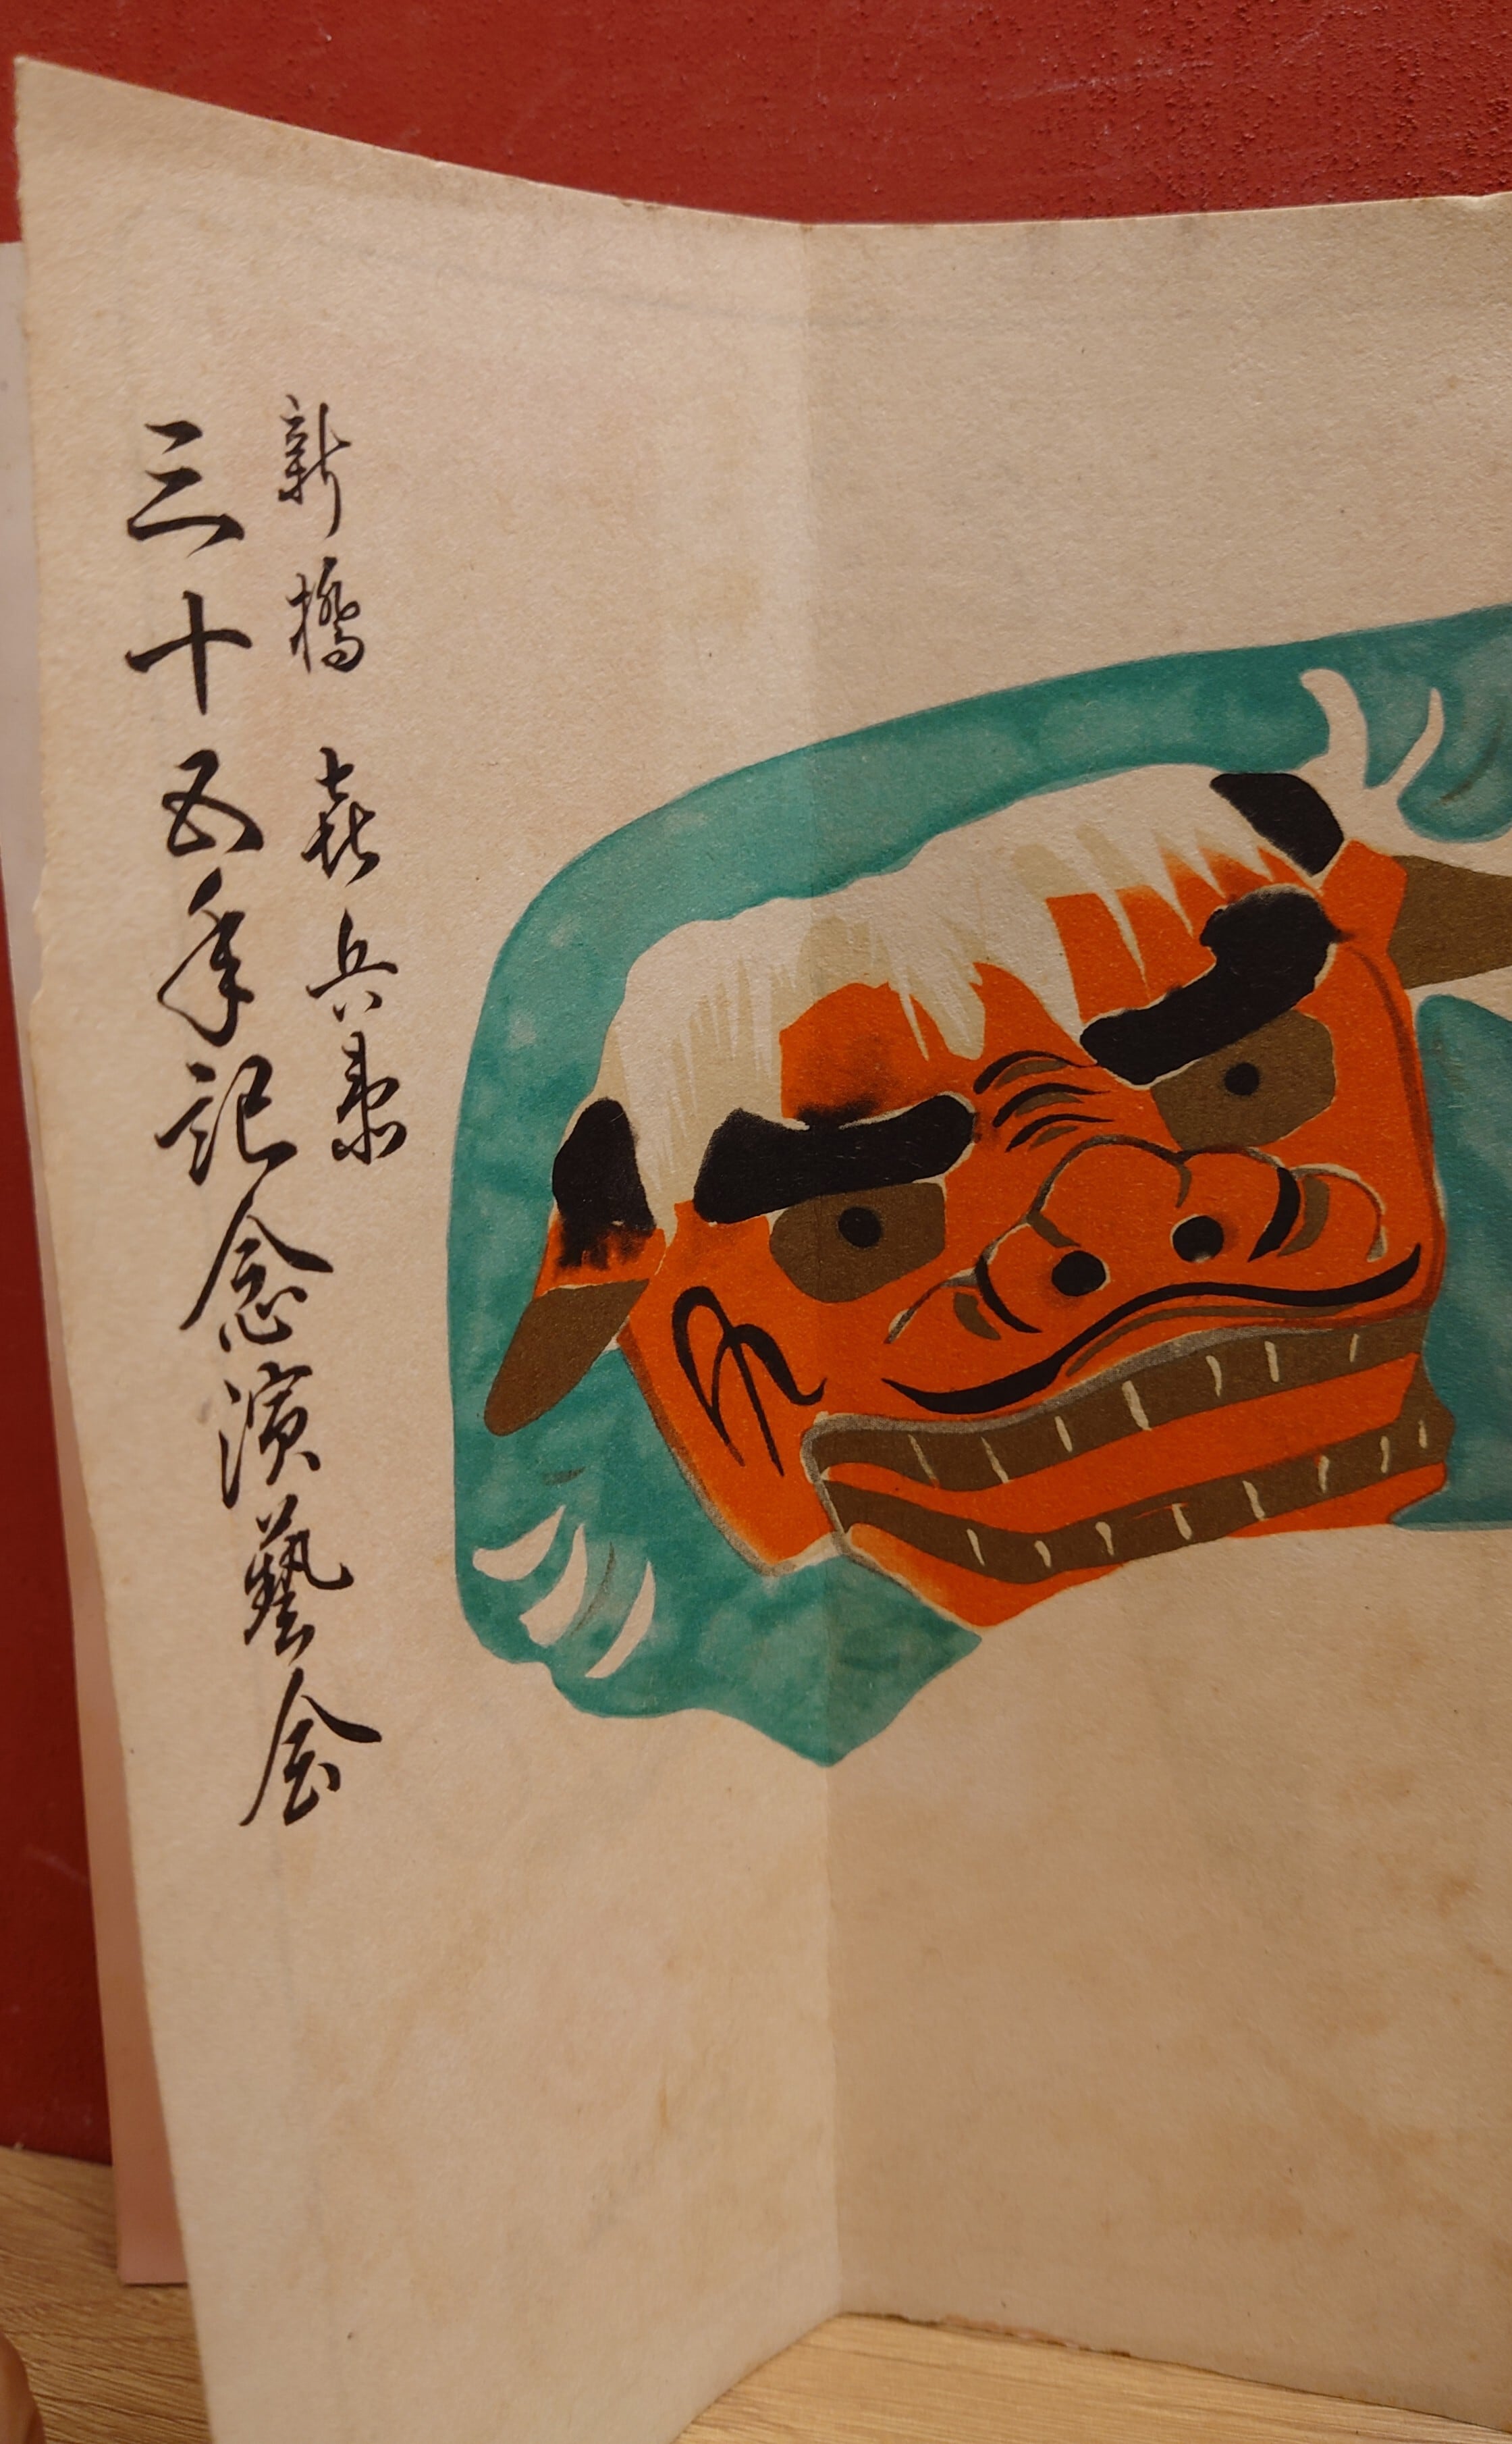 新橋 㐂兵衛
三十五年記念演藝会